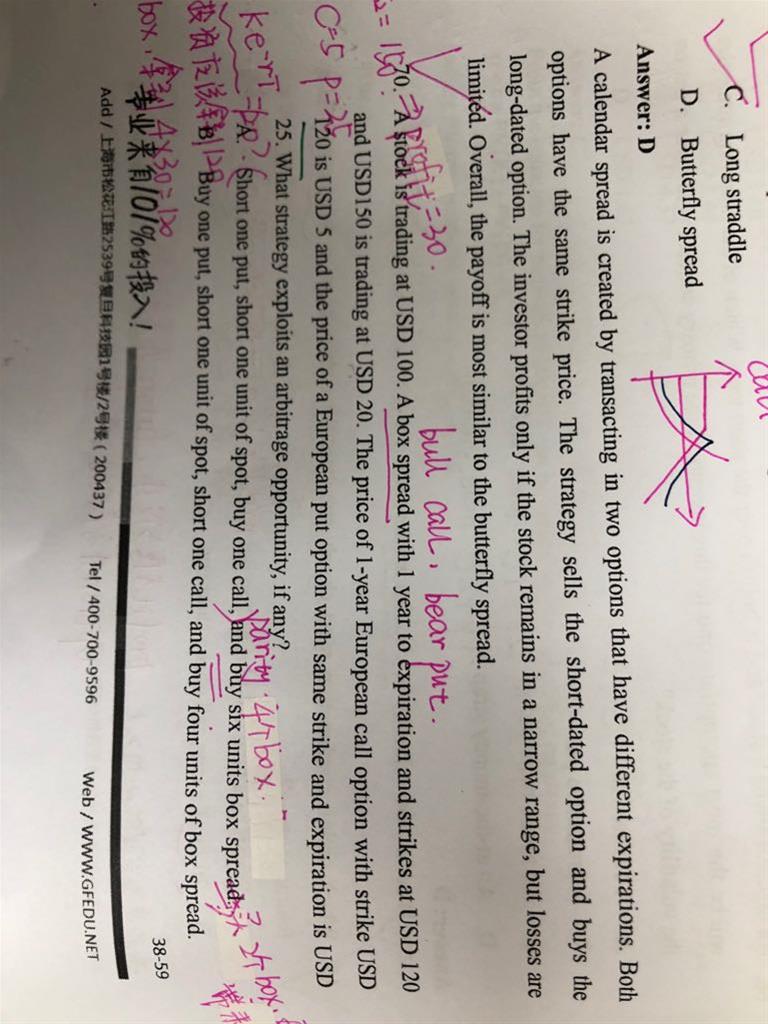 C. Long straddle
D. Butterfly spread
Answer: D
A calendar spread is created by transacting in two options that have different expirations. Both
options have the same strike price. The strategy sells the short-dated option and buys the
long-dated option. The investor profits only if the stock remains in a narrow range, but losses are
limited. Overall, the payoff is most similar to the butterfly spread.
bull call, bear put.
70. A stock is trading at USD 100. A box spread with 1 year to expiration and strikes at USD 120
⇒ profit = 30.
and USD150 is trading at USD 20. The price of 1-year European call option with strike USD
C=5 P=25
120 is USD 5 and the price of a European put option with same strike and expiration is USD
25. What strategy exploits an arbitrage opportunity, if any?
parity. 4个box.
A. Short one put, short one unit of spot, buy one call, and buy six units box spread.
B. Buy one put, short one unit of spot, short one call, and buy four units of box spread.
4×30=120
38-59
专业来自101%的投入!
Add / 上海市松花江路2539号复旦科技园1号楼/2号楼 ( 200437 ) Tel / 400-700-9596 Web / WWW.GFEDU.NET